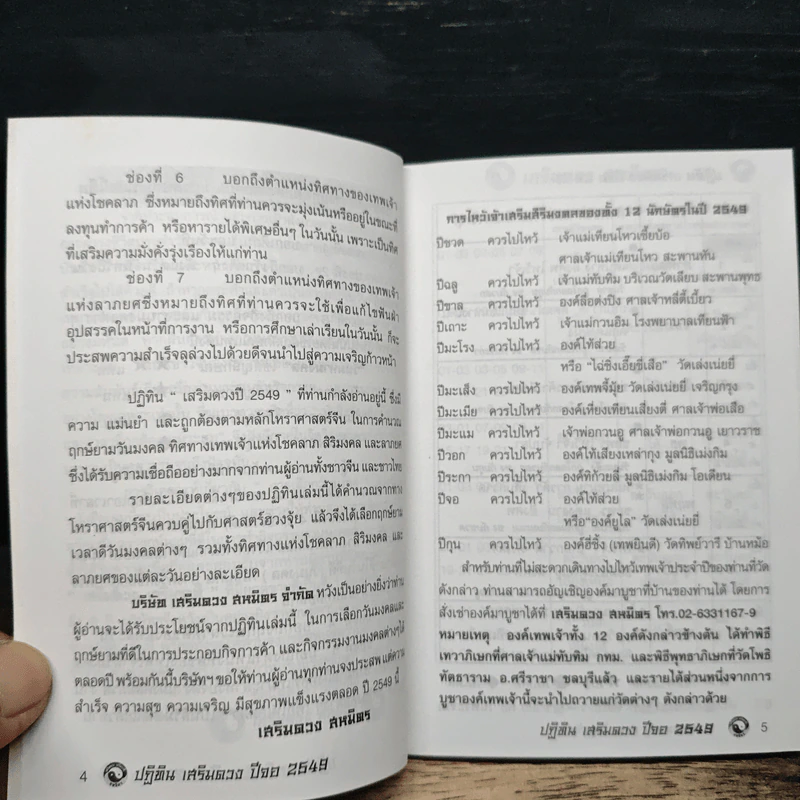 ช่องที่ 6 บอกถึงตำแหน่งทิศทางของเทพเจ้า
แห่งโชคลาภ ซึ่งหมายถึงทิศที่ท่านควรจะมุ่งเน้นหรืออยู่ในขณะที่
ลงทุนทำการค้า หรือหารายได้พิเศษอื่นๆ ในวันนั้น เพราะเป็นทิศ
ที่เสริมความมั่งคั่งรุ่งเรืองให้แก่ท่าน
ช่องที่ 7 บอกถึงตำแหน่งทิศทางของเทพเจ้า
แห่งลาภยศซึ่งหมายถึงทิศที่ท่านควรจะใช้เพื่อแก้ไขฟันฝ่า
อุปสรรคในหน้าที่การงาน หรือการศึกษาเล่าเรียนในวันนั้น ก็จะ
ประสพความสำเร็จลุล่วงไปด้วยดีจนนำไปสู่ความเจริญก้าวหน้า
ปฏิทิน “ เสริมดวงปี 2549 ” ที่ท่านกำลังอ่านอยู่นี้ ซึ่งมี
ความ แม่นยำ และถูกต้องตามหลักโหราศาสตร์จีน ในการคำนวณ
ฤกษ์ยามวันมงคล ทิศทางเทพเจ้าแห่งโชคลาภ สิริมงคล และลาภยศ
ซึ่งได้รับความเชื่อถืออย่างมากจากท่านผู้อ่านทั้งชาวจีน และชาวไทย
รายละเอียดต่างๆของปฏิทินเล่มนี้ได้คำนวณจากทาง
โหราศาสตร์จีนควบคู่ไปกับศาสตร์ฮวงจุ้ย แล้วจึงได้เลือกฤกษ์ยาม
เวลาดีวันมงคลต่างๆ รวมทั้งทิศทางแห่งโชคลาภ สิริมงคล และ
ลาภยศของแต่ละวันอย่างละเอียด
บริษัท เสริมดวง สหมิตร จำกัด หวังเป็นอย่างยิ่งว่าท่าน
ผู้อ่านจะได้รับประโยชน์จากปฏิทินเล่มนี้ ในการเลือกวันมงคลและ
ฤกษ์ยามที่ดีในการประกอบกิจการค้า และกิจกรรมงานมงคลต่างๆได้
ตลอดปี พร้อมกันนี้บริษัทฯ ขอให้ท่านผู้อ่านทุกท่านจงประสพ แต่ความ
สำเร็จ ความสุข ความเจริญ มีสุขภาพแข็งแรงตลอด ปี 2549 นี้
เสริมดวง สหมิตร
4 ปฏิทิน เสริมดวง ปีจอ 2549
การไหว้เจ้าเสริมสิริมงคลของทั้ง 12 นักษัตรในปี 2549
ปีชวด ควรไปไหว้ เจ้าแม่เทียนโหวเซี้ยบ้อ
ศาลเจ้าแม่เทียนโหว สะพานหัน
ปีฉลู ควรไปไหว้ เจ้าแม่ทับทิม บริเวณวัดเลียบ สะพานพุทธ
ปีขาล ควรไปไหว้ องค์ลื่อต่งปิง ศาลเจ้าหลีตี้เบี้ยว
ปีเถาะ ควรไปไหว้ เจ้าแม่กวนอิม โรงพยาบาลเทียนฟ้า
ปีมะโรง ควรไปไหว้ องค์ไท้ส่วย
หรือ “ไฉ่ซิ่งเอี๊ยซี่เสือ” วัดเล่งเน่ยยี่
ปีมะเส็ง ควรไปไหว้ องค์เทพจี้มุ้ย วัดเล่งเน่ยยี่ เจริญกรุง
ปีมะเมีย ควรไปไหว้ องค์เที่ยงเทียนเสี่ยงตี่ ศาลเจ้าพ่อเสือ
ปีมะแม ควรไปไหว้ เจ้าพ่อกวนอู ศาลเจ้าพ่อกวนอู เยาวราช
ปีวอก ควรไปไหว้ องค์ไต้เสียงเหล่ากุง มูลนิธิเม่งกิม
ปีระกา ควรไปไหว้ องค์ทีก้วยลี้ มูลนิธิเม่งกิม โอเดียน
ปีจอ ควรไปไหว้ องค์ไท้ส่วย
หรือ“องค์ยูไล” วัดเล่งเน่ยยี่
ปีกุน ควรไปไหว้ องค์ฮีซิ้ง (เทพยินดี) วัดทิพย์วารี บ้านหม้อ
สำหรับท่านที่ไม่สะดวกเดินทางไปไหว้เทพเจ้าประจำปีของท่านที่วัด
ดังกล่าว ท่านสามารถอัญเชิญองค์มาบูชาที่บ้านของท่านได้ โดยการ
สั่งเช่าองค์มาบูชาได้ที่ เสริมดวง สหมิตร โทร.02-6331167-9
หมายเหตุ องค์เทพเจ้าทั้ง 12 องค์ดังกล่าวข้างต้น ได้ทำพิธี
เทวาภิเษกที่ศาลเจ้าแม่ทับทิม กทม. และพิธีพุทธาภิเษกที่วัดโพธิ
ทัตธาราม อ.ศรีราชา ชลบุรีแล้ว และรายได้ส่วนหนึ่งจากการ
บูชาองค์เทพเจ้านี้จะนำไปถวายแก่วัดต่างๆ ดังกล่าวด้วย
ปฏิทิน เสริมดวง ปีจอ 2549 5